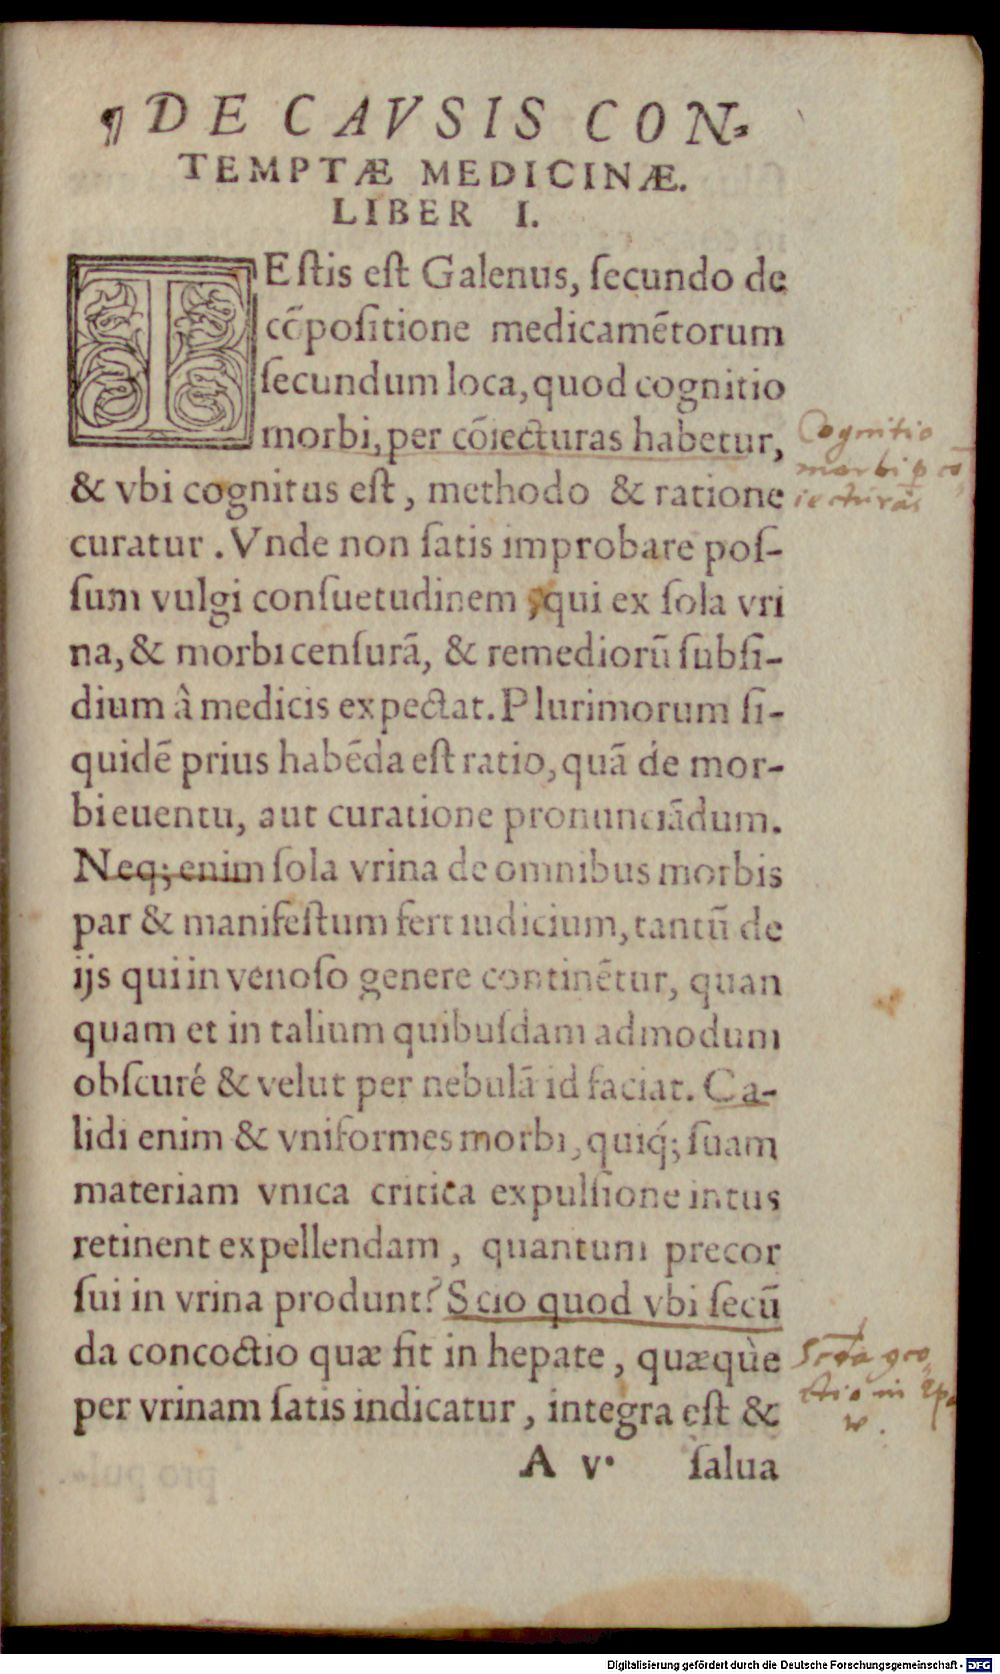 ¶ DE CAVSIS CON-
TEMPTÆ MEDICINÆ.
LIBER I.
TEſtis eſt Galenus, ſecundo de
cõpoſitione medicamẽtorum
ſecundum loca, quod cognitio
morbi, per cõiecturas habetur,
& vbi cognitus eſt, methodo & ratione
curatur. Vnde non ſatis improbare poſ-
ſum vulgi conſuetudinem, qui ex ſola vri
na, & morbi cenſurã, & remediorũ ſubſi-
dium à medicis expectat. Plurimorum ſi-
quidẽ prius habẽda eſt ratio, quã de mor-
bi euentu, aut curatione pronunciãdum.
Neq; enim ſola vrina de omnibus morbis
par & manifeſtum fert iudicium, tantũ de
ijs qui in venoſo genere continẽtur, quan
quam et in talium quibuſdam admodum
obſcuré & velut per nebulã id faciat. Ca-
lidi enim & vniformes morbi, quiq́; ſuam
materiam vnica critica expulſione intus
retinent expellendam, quantum precor
ſui in vrina produnt? Scio quod vbi ſecũ
da concoctio quæ fit in hepate, quæquè
per vrinam ſatis indicatur, integra eſt &
A v. ſalua
Cognitio
morbi p cõ
iecturas
ctio in Epa
Digitalisierung gefördert durch die Deutsche Forschungsgemeinschaft - DFG